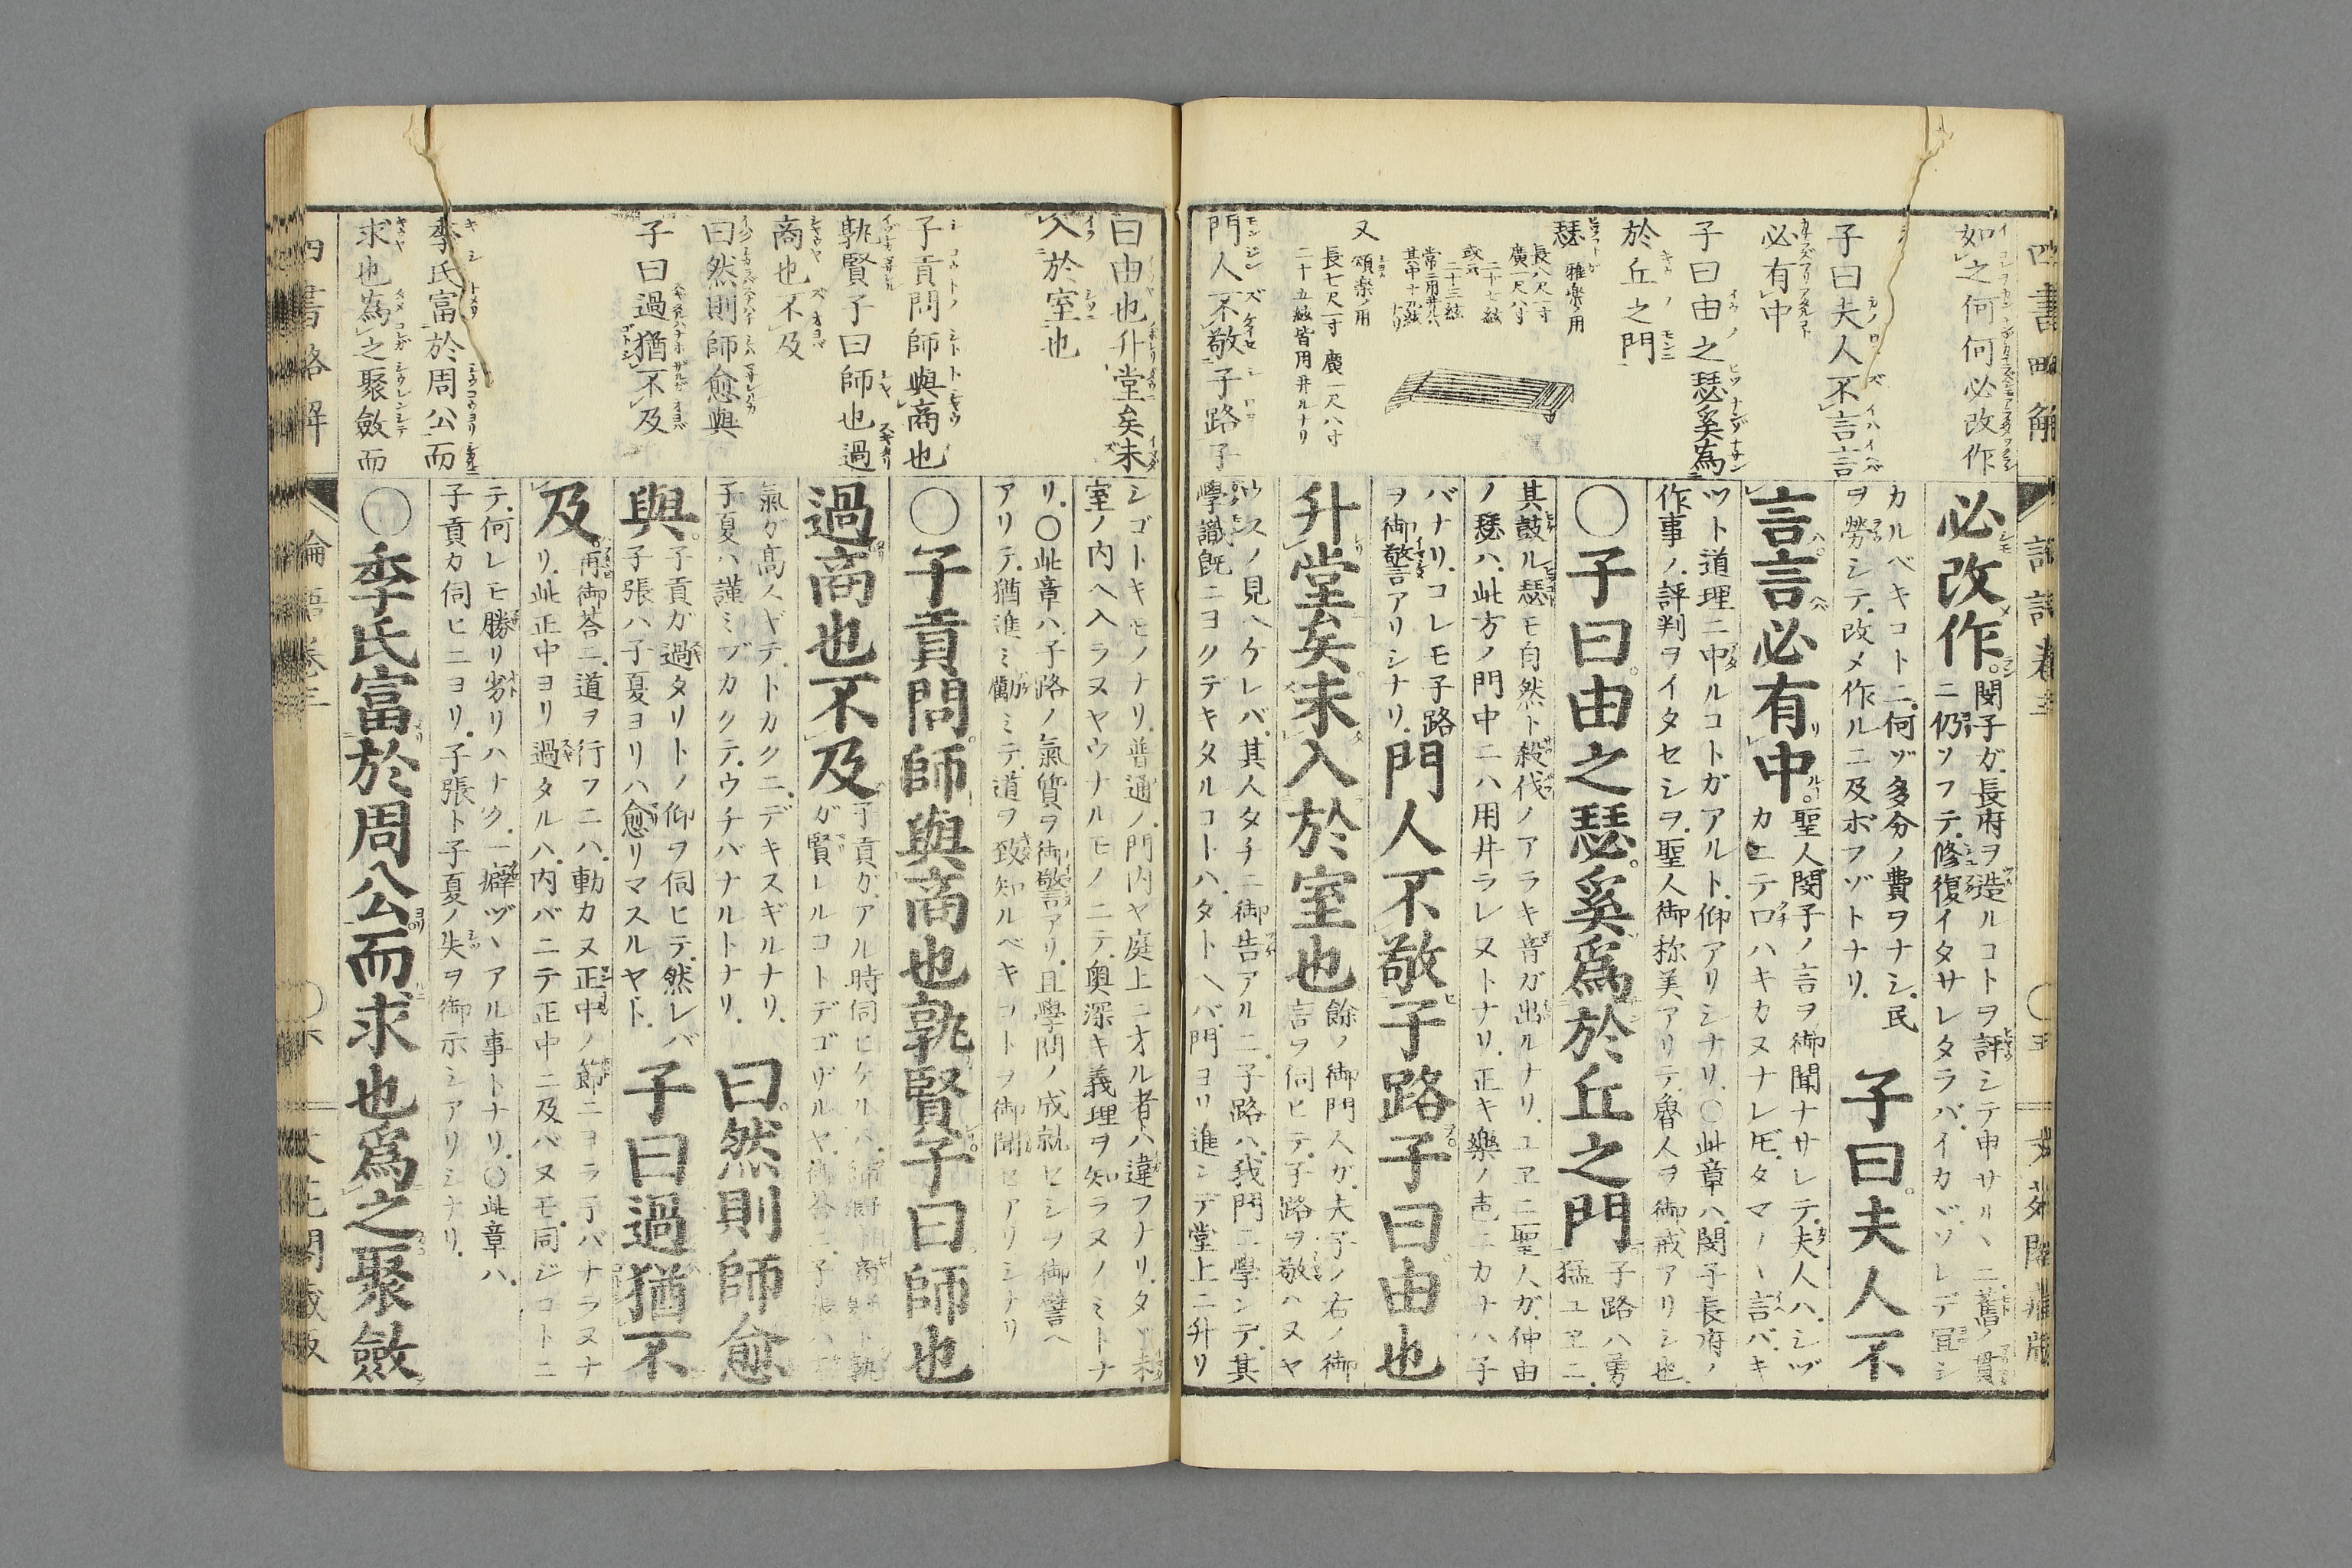 四書略解
如之何何必改作
子曰夫人不言言
必有中
子曰由之瑟奚為
於丘之門
瑟
雅楽ノ用
長八尺一寸
廣一尺八寸
二十七絃
或云
二十三絃
又
頌楽ノ用
長七尺二寸 廣一尺八寸
二十五絃皆用井ルナリ
門人不敬子路子
必改作。閔子ガ、長府ヲ造ルコトヲ評シテ申サルヽニ、舊ノ貫
ニ仍ソフテ、修復イタサレタラバ、イカヾ、ソレデ宜シ
カルベキコトニ、何ヅ多分ノ費ヲナシ、民
ヲ勞シテ、改メ作ルニ及ボフゾトナリ、
子曰。夫人不
言言必有中。聖人閔子ノ言ヲ御聞ナサレテ、夫人ハ、シヅ
カニテ口ハキカヌナレ𪜈、タマ〳〵言バ、キ
ツト道理ニ中ルコトガアルト、仰アリシナリ、○此章ハ、閔子長府ノ
作事ノ、評判ヲイタセシヲ、聖人御称美アリテ、魯人ヲ御戒アリシ也、
○子曰。由之瑟。奚爲於丘之門
子路ハ勇
猛ユヱニ、
其鼓ル瑟モ自然ト殺伐ノアラキ音ガ出ルナリ、ユヱニ聖人ガ、仲由
ノ瑟ハ、此方ノ門中ニハ用井ラレヌトナリ、正キ樂ノ音ニカナハ子
バナリ、コレモ子路
ヲ御警アリシナリ、
門人不敬子路子曰由也
升堂矣未入於室也
餘ノ御門人ガ、夫子ノ右ノ御
言ヲ伺ヒテ、子路ヲ敬ハヌヤ
ウスノ見ヘケレバ、其人タチニ御告アルニ、子路ハ、我門ニ學ンデ、其
學識既ニヨクデキタルコトハ、タトヘバ、門ヨリ進ンデ堂上ニ升リ
曰由也升堂矣未
入於室也
子貢問師與商也
孰賢子曰師也過
商也不及
曰然則師愈與
子曰過猶不及
季氏富於周公而
求也為之聚斂而
シゴトキモノナリ、普通ノ門内ヤ庭上ニオル者ハ違フナリ、タヾ未
室ノ内ヘ入ラヌヤウナルモノニテ、奥深キ義理ヲ知ラヌノミトナ
リ、○此章ハ、子路ノ氣質ヲ御警アリ、且學問ノ成就セシヲ御譬ヘ
アリテ、猶進ミ勵ミテ、道ヲ致知ルベキコトヲ御聞セアリシナリ
○子貢問。師與商也孰賢子曰師也
過商也不及
子貢ガ、アル時伺ヒケルハ
ガ賢レルコトデゴザルヤ、
氣ガ高イヤデ、トカクニ、デキスギルナリ、
子夏ハ謹ミブカクテ、ウチバナルトナリ、
曰。然則師愈
與。
子貢ガ過タリトノ仰ヲ伺ヒテ、然レバ
子張ハ子夏ヨリハ愈リマスルヤト、
子曰過猶不
及。
再御答ニ、道ヲ行フニハ、動カヌ正中ノ節ニヨラ子バナラヌナ
リ、此正中ヨリ過タルハ、内バニテ正中ニ及バヌモ、同ジコトニ
テ、何レモ勝リ劣リハナク、一癖ヅヽアル事トナリ、○此章ハ、
子貢カ伺ヒニヨリ、子張ト子夏ノ失ヲ御示シアリシナリ、
○季氏富於周公而求也爲之聚斂
四書略解
論語卷三